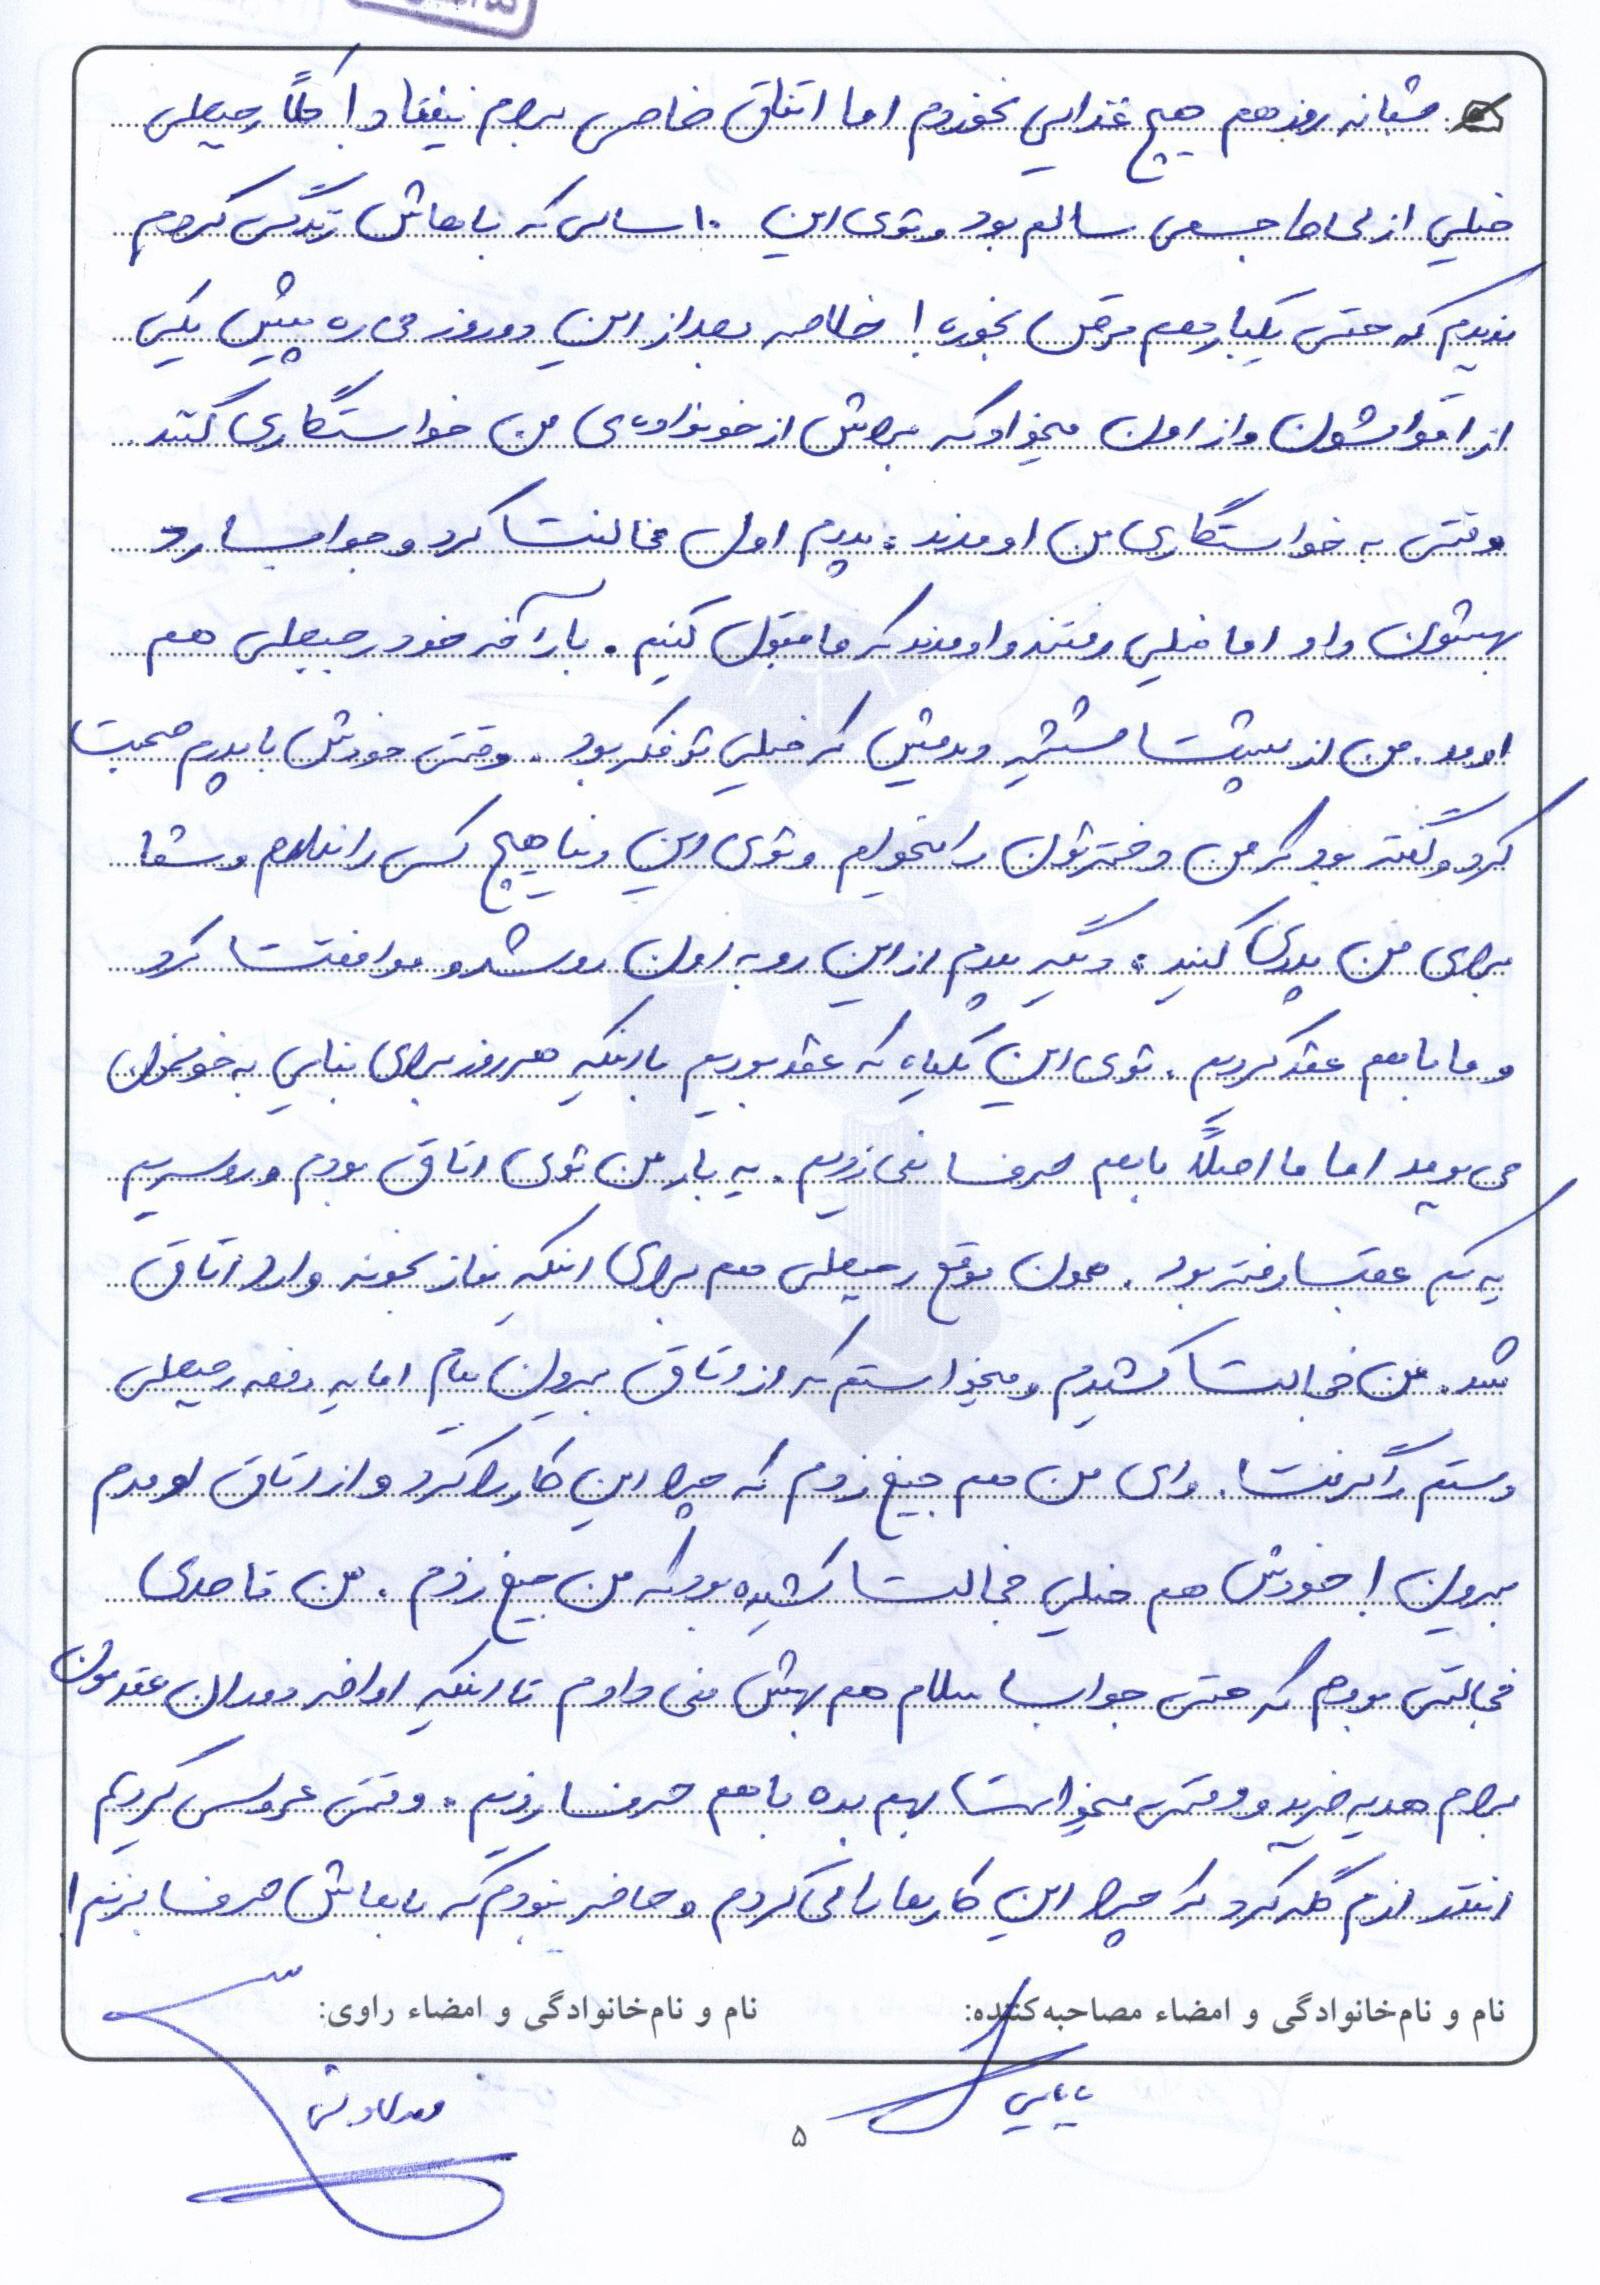 شبانه روز هم هیچ غذایی نخوردم اما اتفاق خاصی برام نیفتاد! کلاً رجبعلی
خیلی از لحاظ جسمی سالم بود و توی این ۱۰ سالی که باهاش زندگی کردم
ندیدم که حتی یکبار هم قرص بخوره! خلاصه بعد از این دو روز می ره پیش یکی
از اقوامشون و از اون میخواد که براش از خونواده ی من خواستگاری کنند.
وقتی به خواستگاری من اومدند، پدرم اول مخالفت کرد و جواب رد
بهشون داد اما خیلی رفتند و اومدند که ما قبول کنیم. بار آخر خود رجبعلی هم
اومد. من از پشت شیشه دیدمش که خیلی تو فکر بود. وقتی خودش با پدرم صحبت
کرد و گفته بود که من دخترتون را میخوام و توی این دنیا هیچ کس را ندارم و شما
برای من پدری کنید، دیگه پدرم از این رو به اون رو شد و موافقت کرد
و ما با هم عقد کردیم. توی این یکماه که عقد بودیم با اینکه هر روز برای بنایی به خونمون
می یومد اما ما اصلاً با هم حرف نمی زدیم. یه بار من توی اتاق بودم و روسریم
یه کم عقب رفته بود. همون موقع رجبعلی هم برای اینکه نماز بخونه وارد اتاق
شد. من خجالت کشیدم و میخواستم که از اتاق بیرون بیام اما یه دفعه رجبعلی
دستم را گرفت. وای من هم جیغ زدم که چرا این کار را کرد و از اتاق اومدم
بیرون! خودش هم خیلی خجالت کشیده بود که من جیغ زدم. من تا حدی
خجالتی بودم که حتی جواب سلام هم بهش نمی دادم تا اینکه اواخر دوران عقدمون
برام هدیه خرید و وقتی میخواست بهم بده با هم حرف زدیم. وقتی عروسی کردیم
انقدر ازم گله کرد که چرا این کارها را می کردم و حاضر نبودم که باهاش حرف بزنم!
نام و نام‌خانوادگی و امضاء مصاحبه‌کننده: نام و نام‌خانوادگی و امضاء راوی:
بابایی
۵